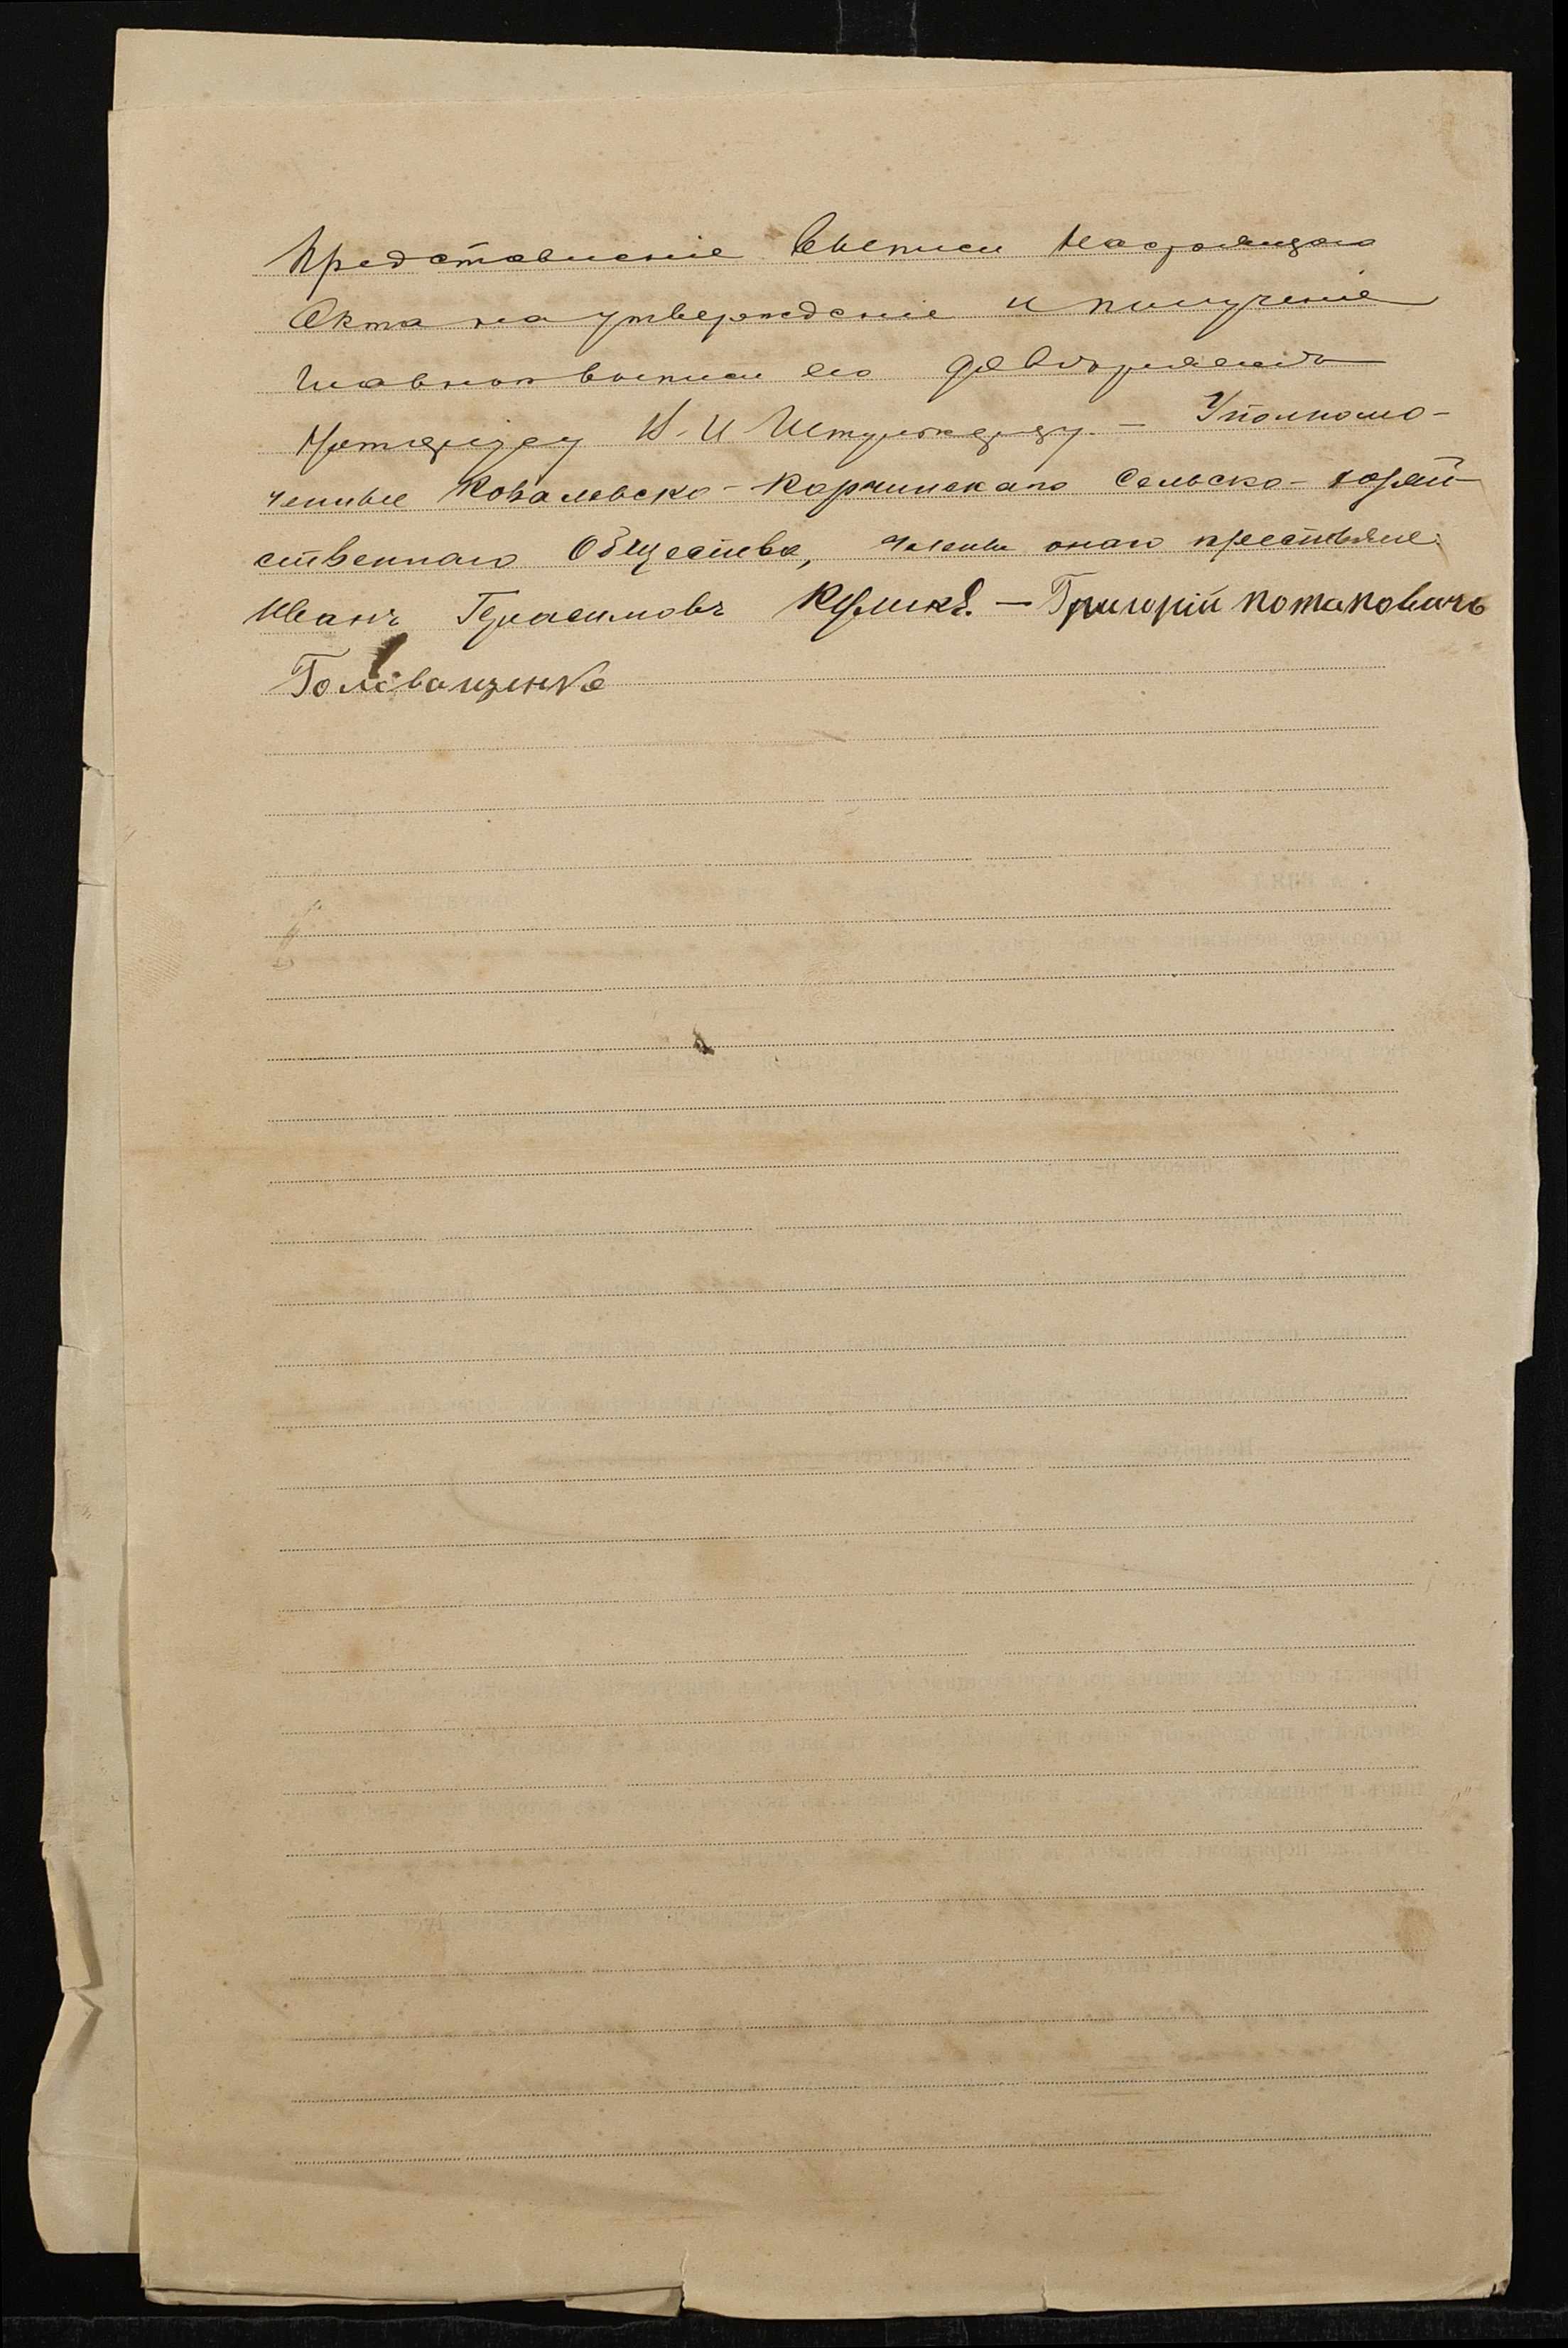 Представленіе выписи настоящаго
Акта на утвержденіе и полученіе
главной выписи его довѣряемъ
Нотаріусу
Уполномо-
ченные Ковалевско-Корчинскаго Сельско-хозяй
ственнаго Общества, члены онаго крестьяне:
Иванъ Герасимовъ Куликъ. — Григорій Потаповичъ
Голованченко